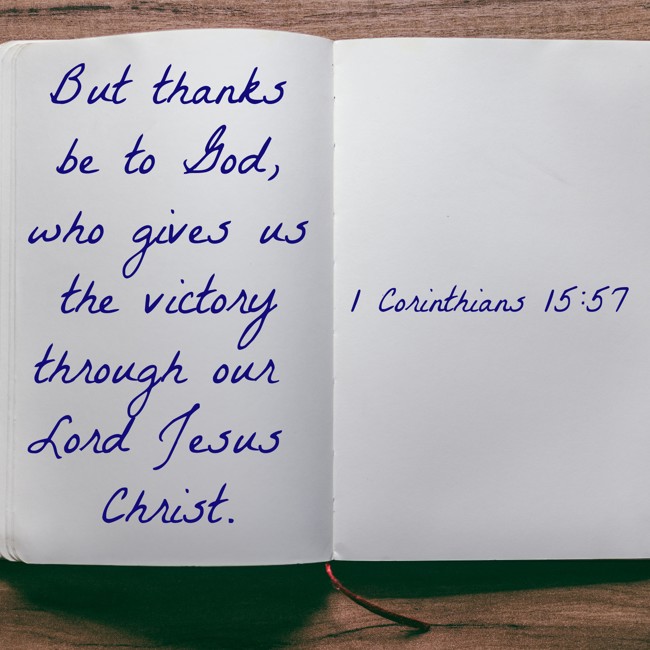 But thanks
be to God,
who gives us
the victory
through our
Lord Jesus
Christ.
1 Corinthians 15:57